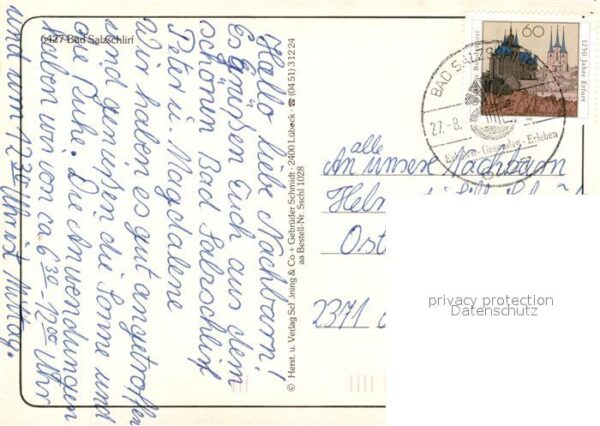 6427 Bad Salzschlirf
Hallo liebe Nachbarn!
Es grüßen Euch aus dem
schönen Bad Salzschlirf
Peter u. Magdalene
Wir haben es gut angetroffen
und genießen die Sonne und
die Ruhe. Die Anwendungen
haben wir von ca 6³⁰-12⁰⁰ Uhr
und um 12³⁰ Uhr ist Mittag.
© Herst. u. Verlag Schöning & Co + Gebrüder Schmidt · 2400 Lübeck · ☎ (04 51) 3 12 24
aa Bestell-Nr. Sschl 1028
60
1250 Jahre Erfurt
BAD SALZSCHLIRF
27.-8.
Erholen-Gesunden-Erleben
alle
An unsere Nachbarn
Ost
2371
privacy protection
Datenschutz